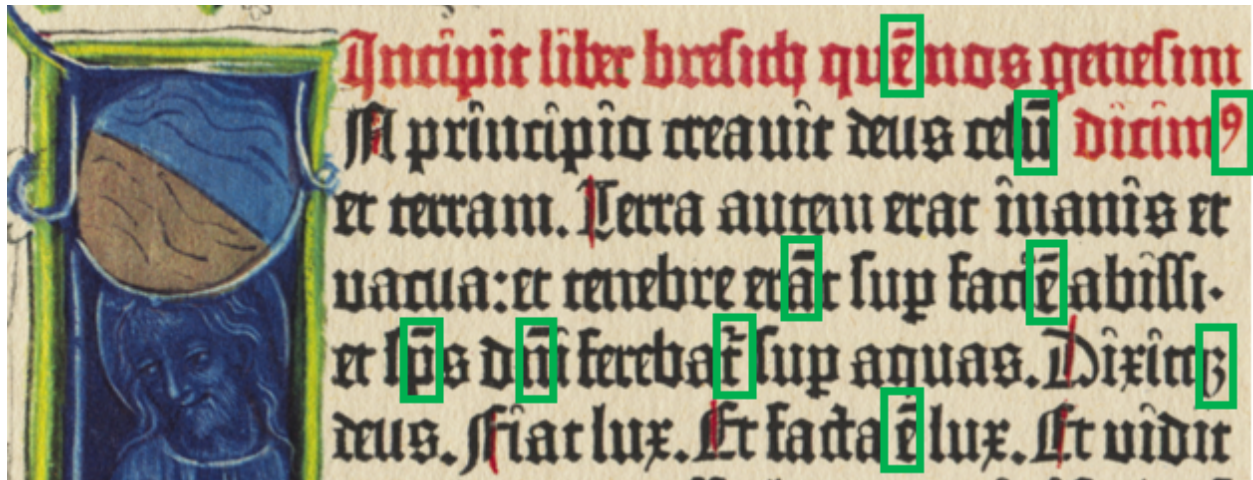 Incipit liber bresith quē nos genesim
In principio creauit deus celū dicimꝰ
et terram. Terra autem erat inanis et
uacua: et tenebre erāt suꝑ faciē abissi.
et sp̄s dn̄i ferebat᷑ suꝑ aquas. Dixitqꝫ
deus. Fiat lux. Et facta ē lux. Et uidit